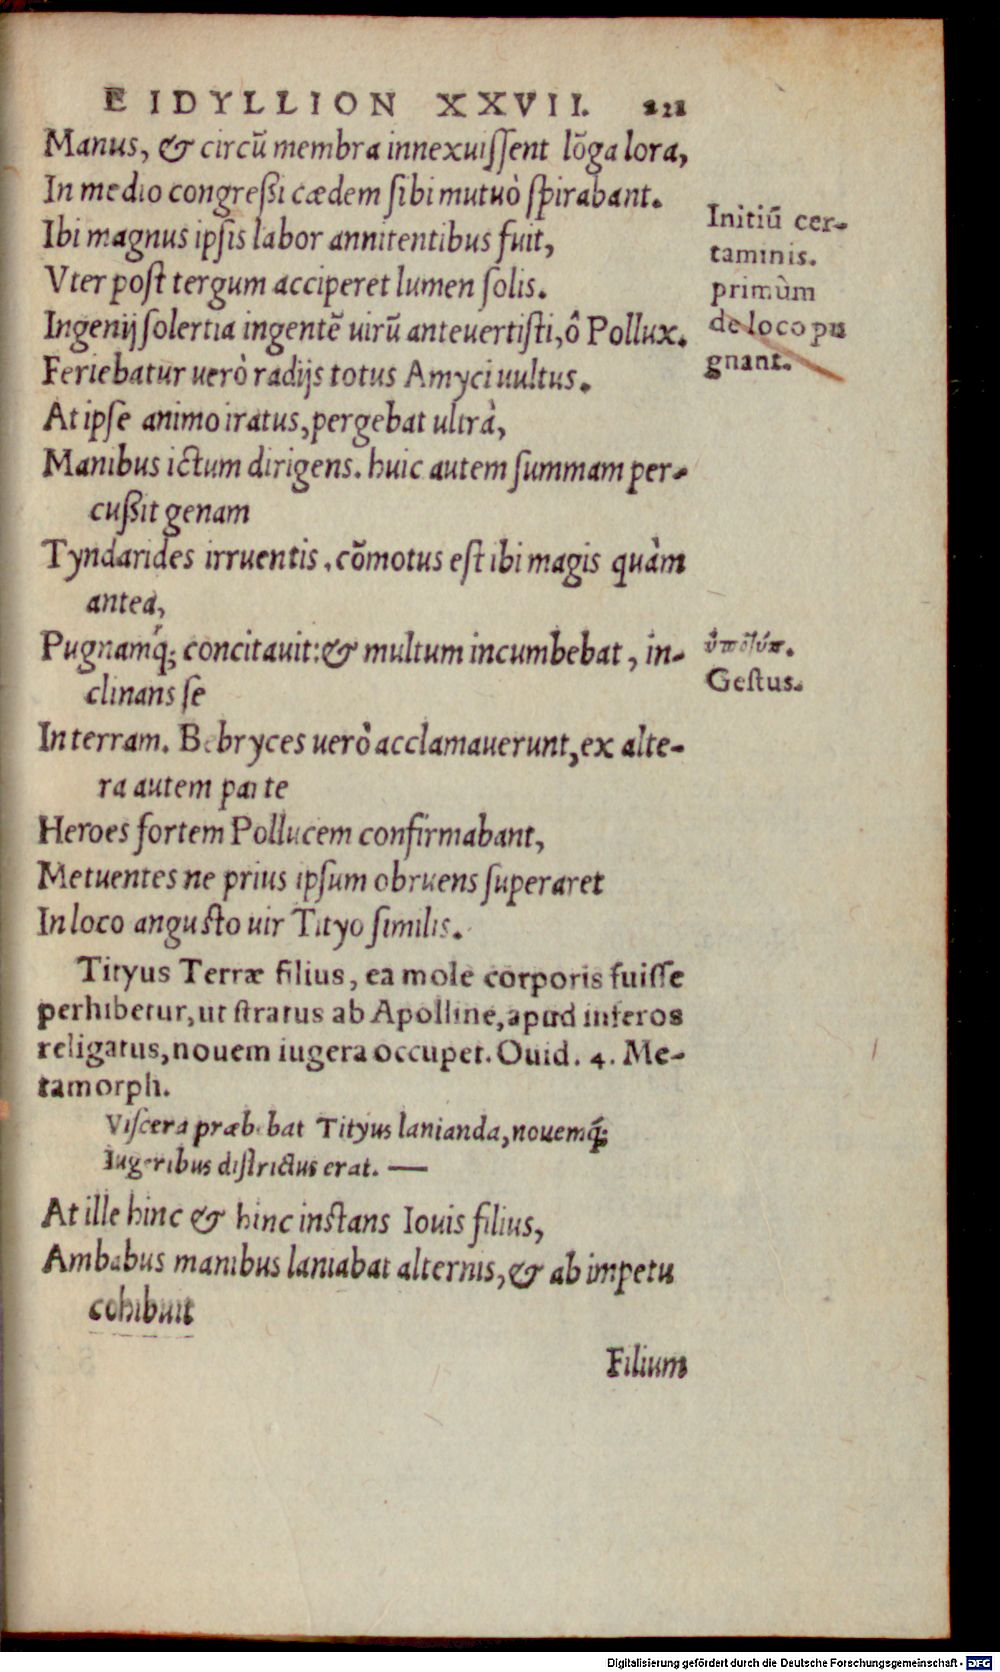 EIDYLLION XXVII. 221
Manus, & circũ membra innexuiſſent lõga lora,
In medio congreßi cædem ſibi mutuò ſpirabant.
Ibi magnus ipſis labor annitentibus fuit,
Vter poſt tergum acciperet lumen ſolis.
Ingenij ſolertia ingentẽ uirũ anteuertiſti, ô Pollux.
Feriebatur uerò radijs totus Amyci uultus.
At ipſe animo iratus, pergebat ultrà,
Manibus ictum dirigens. huic autem ſummam per-
cußit genam
Tyndarides irruentis, cõmotus eſt ibi magis quàm
antea,
Pugnamq́; concitauit: & multum incumbebat, in-
clinans ſe
In terram. Bebryces uerò acclamauerunt, ex alte-
ra autem parte
Heroes fortem Pollucem confirmabant,
Metuentes ne prius ipſum obruens ſuperaret
In loco anguſto uir Tityo ſimilis.
Initiũ cer-
taminis.
primùm
de loco pu
gnant.
Geſtus.
Tityus Terræ filius, ea mole corporis fuiſſe
perhibetur, ut ſtratus ab Apolline, apud inferos
religatus, nouem iugera occupet. Ouid. 4. Me-
tamorph.
Viſcera præbebat Tityus lanianda, nouemq́;
Iugeribus diſtrictus erat. —
At ille hinc & hinc inſtans Iouis filius,
Ambabus manibus laniabat alternis, & ab impetu
cohibuit
Filium
Digitalisierung gefördert durch die Deutsche Forschungsgemeinschaft - DFG